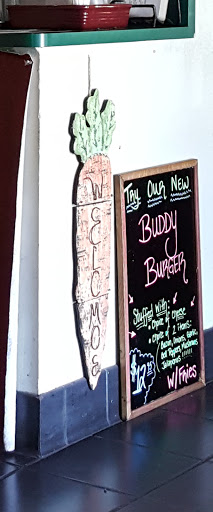 WELCOME
Try Our New
Buddy
Burger
Stuffed With:
Choice of cheese
Choice of 2 items:
Bacon, Onions, Garlic,
Bell Peppers, Mushrooms
Jalapenos !!!!!
$12
W/Fries